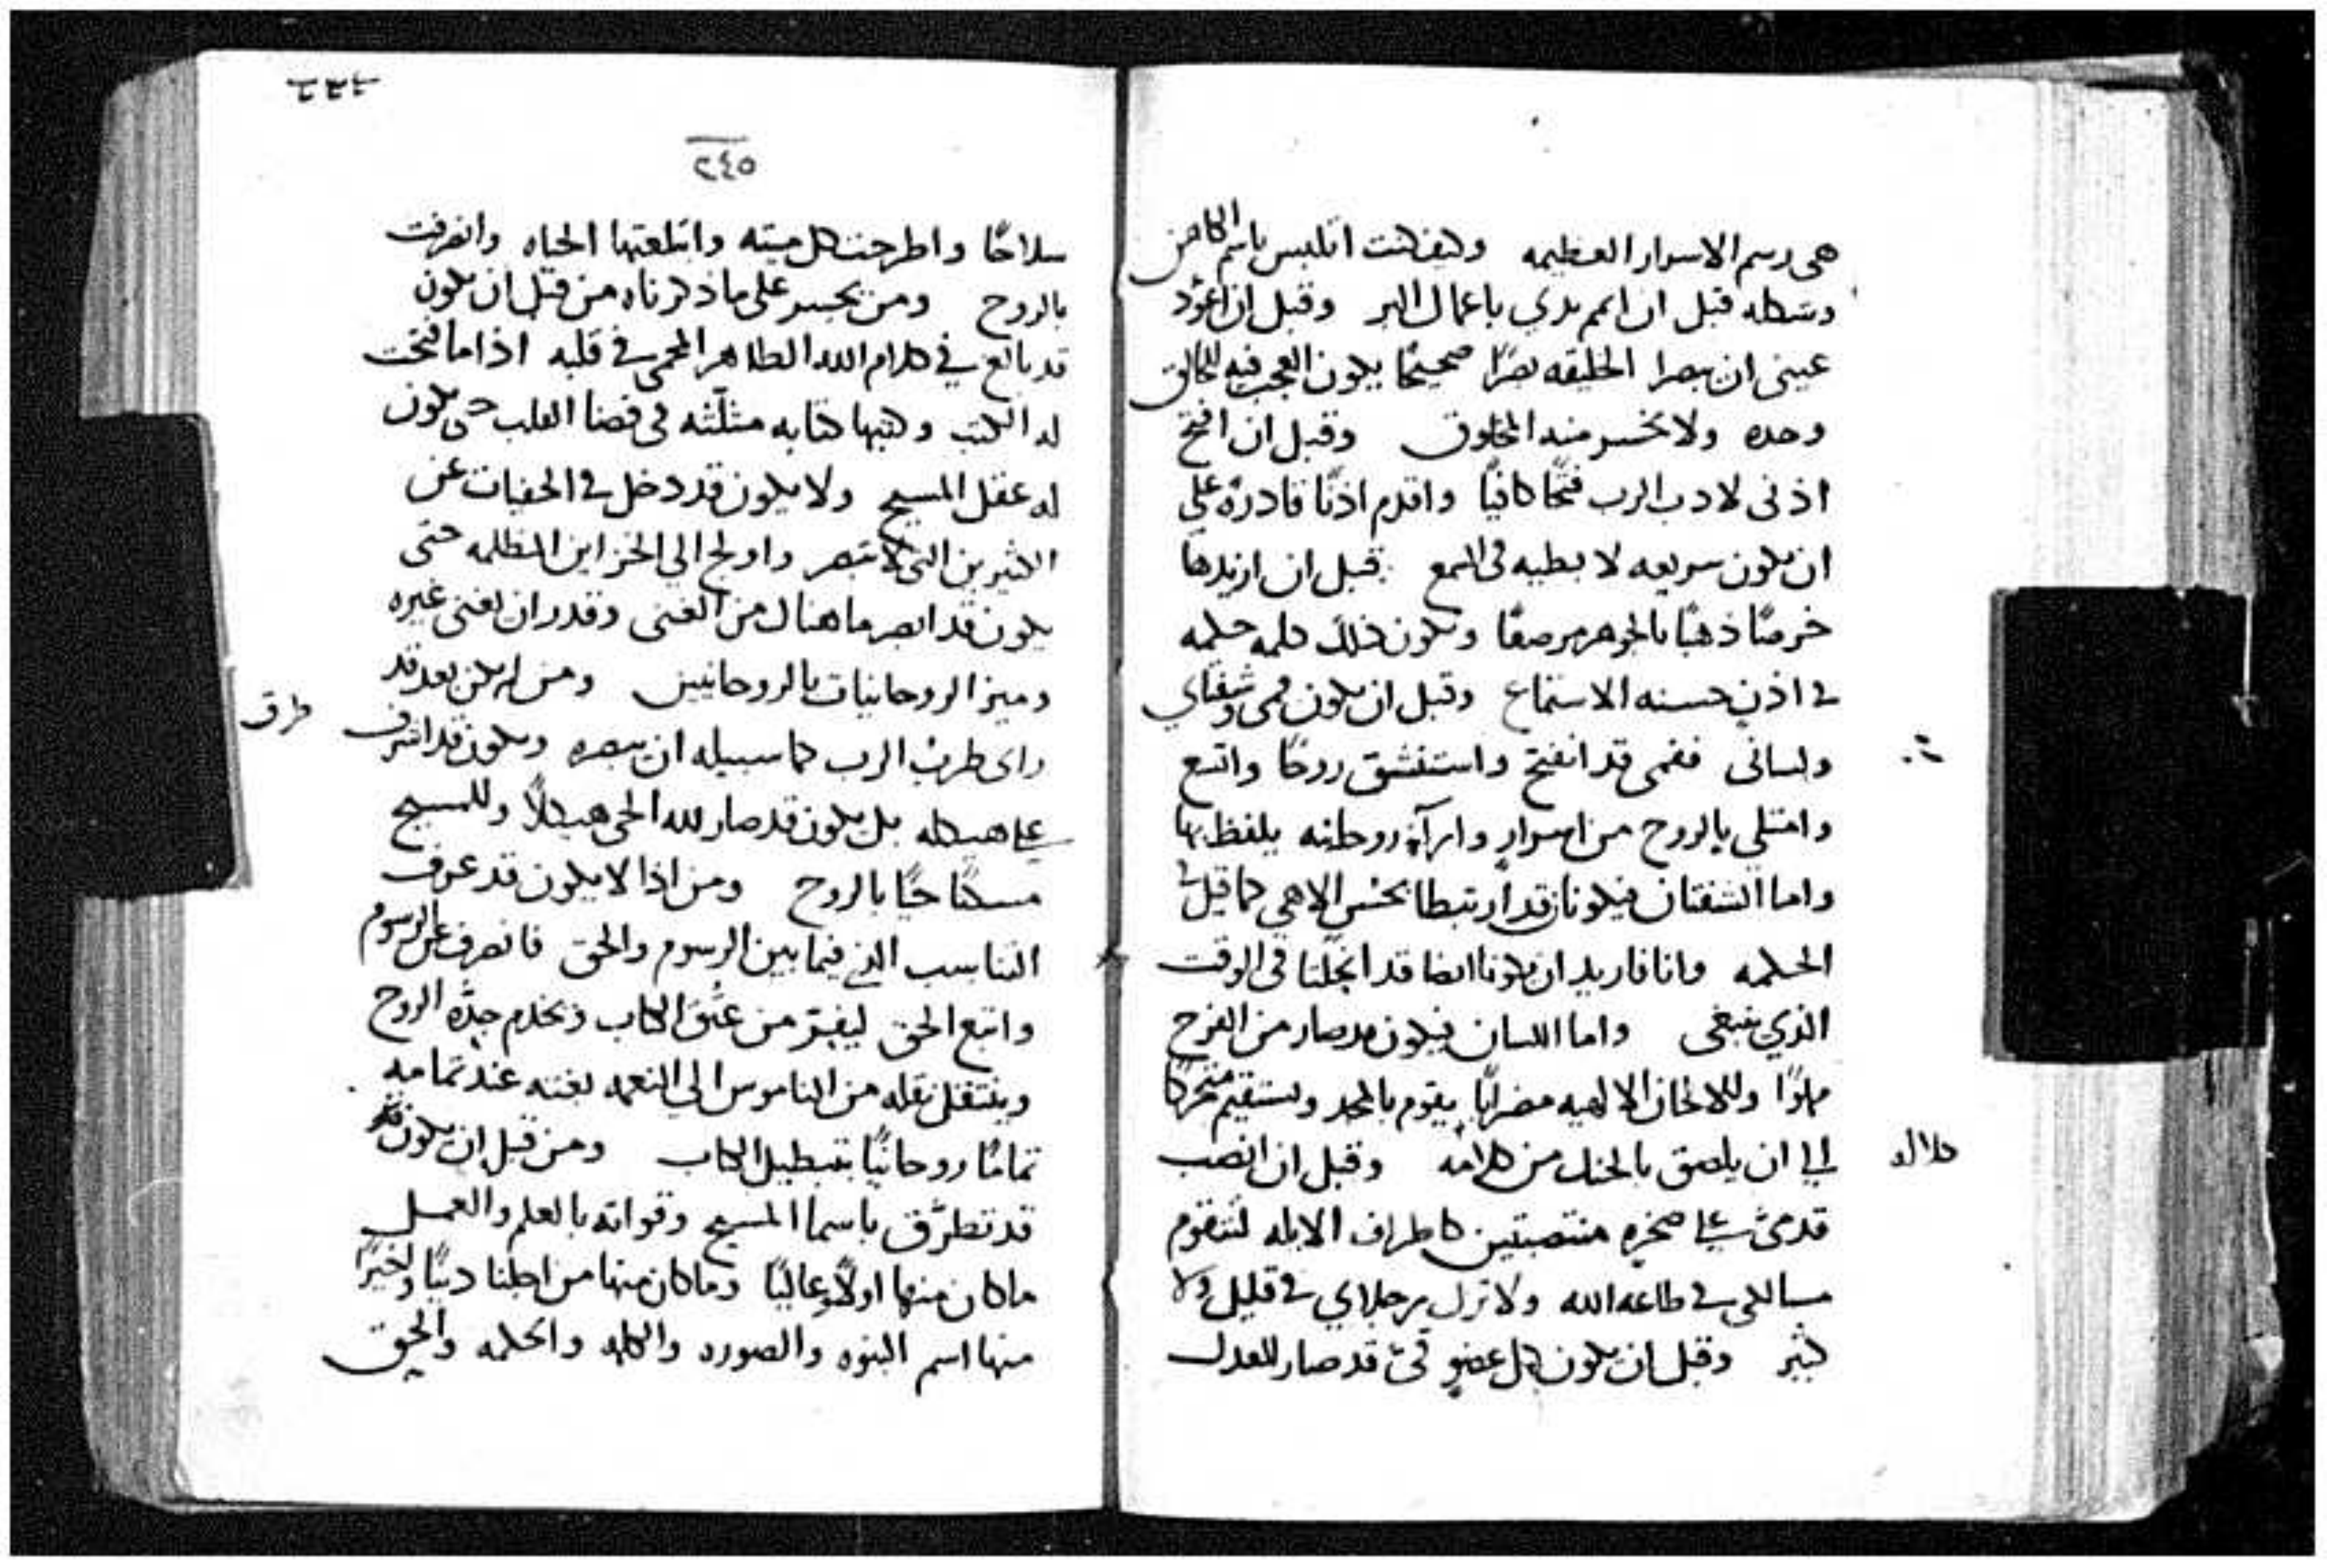 هى رسم الاسرار العظيمه وكيف كنت اتلبس باسم الكاهن
وشكله قبل ان اتمم يدي باعمال البر وقبل ان اعوّد
عينى ان تبصرا الخليقه بصرًا صحيحًا يكون العجب فيه للخالق
وحده ولا يخسر منه المخلوق وقبل ان افتح
اذنى لادب الرب فتحًا كافيًا واقدم اذنًا قادرة على
ان تكون سريعه لا بطيه فى السمع قبل ان ازيدها
خرصًا ذهبًا بالجوهر مرصعًا وتكون تلك كلمه حكيمه
فى اذنٍ حسنه الاستماع وقبل ان يكون فمى وشفتاي
ولسانى ففمى قد انفتح واستنشق روحًا واتسع
وامتلى بالروح من اسرارٍ وارآءٍ روحانيه يلفظ بها
واما الشفتان فيكونان قد ارتبطا بحسٍ الاهي كما قيل فى
الحكمه وانا فاريد ان تكونا ايضا قد انحلتا فى الوقت
الذي ينبغى واما اللسان فيكون قد صار من الفرح
مملوًا وللالحان الالهيه مضرابًا يقوم بالمجد ويستقيم متحركًا
الى ان يلصق بالحنك من كلامه وقبل ان انصب
كلاله
قدمىَّ على صخرهٍ منتصبتين كاطراف الايله لتتقوم
مسالكى فى طاعه الله ولا تزل رجلاي فى قليل ولا
كثير وقبل ان يكون كل عضوٍ فىَّ قد صار للعدل
٢٤٥
سلاحًا واطرحت كل ميته وابتلعتها الحياه وانصرفت
بالروح ومن يجسر على ما ذكرناه من قبل ان يكون
قد بالغ فى كلام الله الطاهر المحمى فى قلبه اذا ما فتحت
له الكتب وكتبها كتابه مثلّثه فى فضا القلب حتى يكون
له عقل المسيح ولا يكون قد دخل فى الخفيات عن
الكثيرين التى لا تبصر واولج الى الخزاين المظلمه حتى
يكون قد ابصر ما هناك من الغنى وقدر ان يغنى غيره
وميز الروحانيات بالروحانيين ومن لم يكن بعد قد
راى طرب الرب كما سبيله ان يبصره ويكون قد اشرف
طرق
على هيكله بل يكون قد صار لله الحى هيكلًا وللمسيح
مسكنًا حيًا بالروح ومن اذا لا يكون قد عرف
التناسب الذي فيما بين الرسوم والحق فانصرف عن الرسوم
واتبع الحق ليفر من عتق الكتاب ويخدم جدّه الروح
وينتقل نقله من الناموس الى النعمه بغيته عند تمامه
تمامًا روحانيًا بتبطيل الكتاب ومن قبل ان يكون
قد تطرّق باسما المسيح وقواته بالعلم والعمل
ما كان منها اولًا وعاليًا وما كان منها من اجلنا دنيًا واخيرًا
منها اسم البنوه والصوره والكلمه والحكمه والحق